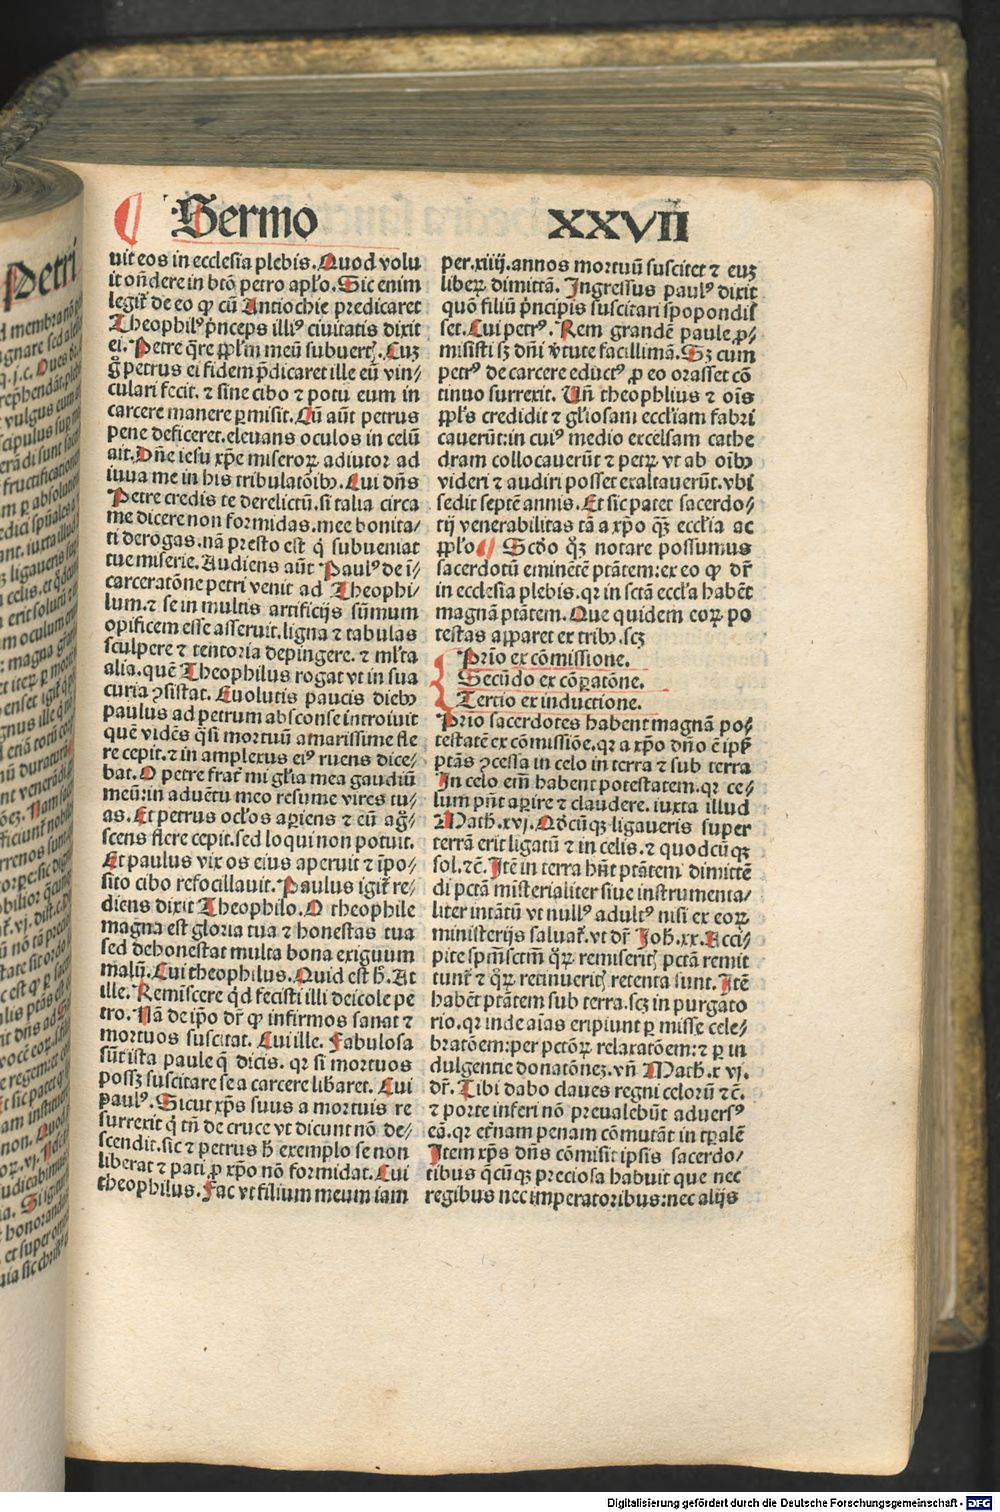 Sermo XXVII
uit eos in ecclesia plebis. Quod volu
it oñdere in btõ petro apľo. Sic enim
legit̃ de eo ꝙ cũ Antiochie predicaret
Theophilꝰ p̃nceps illiꝰ ciuitatis dixit
ei. Petre q̃re ppľm meũ subuert᷒. Cuꝫ
g̊ petrus ei fidem p̃dicaret ille eũ vin⸗
culari fecit. ⁊ sine cibo ⁊ potu eum in
carcere manere ꝑmisit. Cũ aũt petrus
pene deficeret. eleuans oculos in celũ
ait. Dñe iesu xp̃e miseroꝝ adiutor ad
iuua me in his tribulatõibꝰ. Cui dñs
Petre credis te derelictũ. si talia circa
me dicere non formidas. mee bonita⸗
ti derogas. nã presto est q̇ subueniat
tue miserie. Audiens aũt Paulꝰ de ĩ⸗
carceratõne petri venit ad Theophi⸗
lum. ⁊ se in multis artificijs sũmum
opificem esse asseruit. ligna ⁊ tabulas
sculpere ⁊ tentoria depingere. ⁊ mľta
alia. quẽ Theophilus rogat vt in sua
curia ꝯsistat. Euolutis paucis diebꝰ
paulus ad petrum absconse introiuit
quẽ vidẽs q̃si mortuũ amarissime fle
re cepit. ⁊ in amplexus eiꝰ ruens dice⸗
bat. O petre frat̃ mi gľia mea gaudiũ
meũ: in aduẽtu meo resume vires tu⸗
as. Et petrus ocľos aꝑiens ⁊ eũ ag̃⸗
scens flere cepit. sed loqui non potuit.
Et paulus vix os eius aperuit ⁊ ĩpo⸗
sito cibo refocillauit. Paulus igit̃ re⸗
diens dixit Theophilo. O theophile
magna est gloria tua ⁊ honestas tua
sed dehonestat multa bona exiguum
malũ. Cui theophilus. Quid est h̃. At
ille. Remiscere q̇d fecisti illi deicole pe
tro. Nã de ip̃o dr̃ ꝙ infirmos sanat ⁊
mortuos suscitat. Cui ille. Fabulosa
sũt ista paule q̃ dicis. qꝛ si mortuos
possꝫ suscitare se a carcere liƀaret. Cui
paulꝰ. Sicut xp̃s suus a mortuis re
surrexit q̇ tñ de cruce vt dicunt nõ de⸗
scendit. sic ⁊ petrus h̃ exemplo se non
liberat ⁊ pati ꝓ xp̃o nõ formidat. Cui
theophilus. Fac vt filium meum iam
per .xiiij. annos mortuũ suscitet ⁊ euꝫ
liberꝝ dimittã. Ingressus paulꝰ dixit
quõ filiũ p̃ncipis suscitari spopondis
set. Cui petrꝰ. Rem grandẽ paule ꝓ⸗
misisti sꝫ dñi ṽtute facillimã. Sꝫ cum
petrꝰ de carcere eductꝰ ꝓ eo orasset cõ
tinuo surrexit. Uñ theophilus ⁊ ois̃
ppľs credidit ⁊ gľiosam eccľiam fabri
cauerũt: in cuiꝰ medio excelsam cathe
dram collocauerũt ⁊ petꝝ vt ab oĩbꝰ
videri ⁊ audiri posset exaltauerũt. vbi
sedit septẽ annis. Et sic patet sacerdo⸗
tij venerabilitas tã a xp̃o qꝫ eccľia ac
ppľo ¶ Scďo qꝫ notare possumus
sacerdotũ eminẽtẽ ptãtem: ex eo ꝙ dr̃
in ecclesia plebis. qꝛ in sctã eccľa habẽt
magnã ptãtem. Que quidem eoꝝ po
testas apparet ex tribꝰ. scꝫ
Prio ex cõmissione.
Secũdo ex cõꝑatõne.
Tercio ex inductione.
Prio sacerdotes habent magnã po⸗
testatẽ ex cõmissiõe. qꝛ a xp̃o dño ẽ ip̃ꝭ
ptãs ꝯcessa in celo in terra ⁊ sub terra
In celo em̃ habent potestatem. qꝛ ce⸗
lum pñt aꝑire ⁊ claudere. iuxta illud
Math̃. xvj. Qďcũqꝫ ligaueris super
terrã erit ligatũ ⁊ in celis. ⁊ quodcũqꝫ
sol. ⁊c̃. Itẽ in terra hñt ptãtem dimittẽ
di pctã misterialiter siue instrumenta⸗
liter intãtũ vt nullꝰ adultꝰ nisi ex eoꝝ
ministerijs saluat̃. vt dr̃ Joh̃. xx. Acci⸗
pite spm̃ sctm̃ qꝝ remiserit᷒ pctã remit
tunt̃ ⁊ qꝝ retinuerit᷒ retenta sunt. Itẽ
habẽt ptãtem sub terra. scꝫ in purgato
rio. qꝛ inde aĩas eripiunt ꝑ misse cele⸗
bratõem: per pctõꝝ relaxatõem: ⁊ ꝑ in
dulgentie donatõneꝫ. vñ Math̃. xvj.
dr̃. Tibi dabo claues regni celorũ ⁊c̃.
⁊ porte inferi nõ preualebũt aduersꝰ
eã. qꝛ et̃nam penam cõmutãt in tꝑalẽ
Item xp̃s dñs cõmisit ipsis sacerdo⸗
tibus q̃cũqꝫ preciosa habuit que nec
regibus nec imperatoribus: nec alijs
Petri
Digitalisierung gefördert durch die Deutsche Forschungsgemeinschaft - DFG